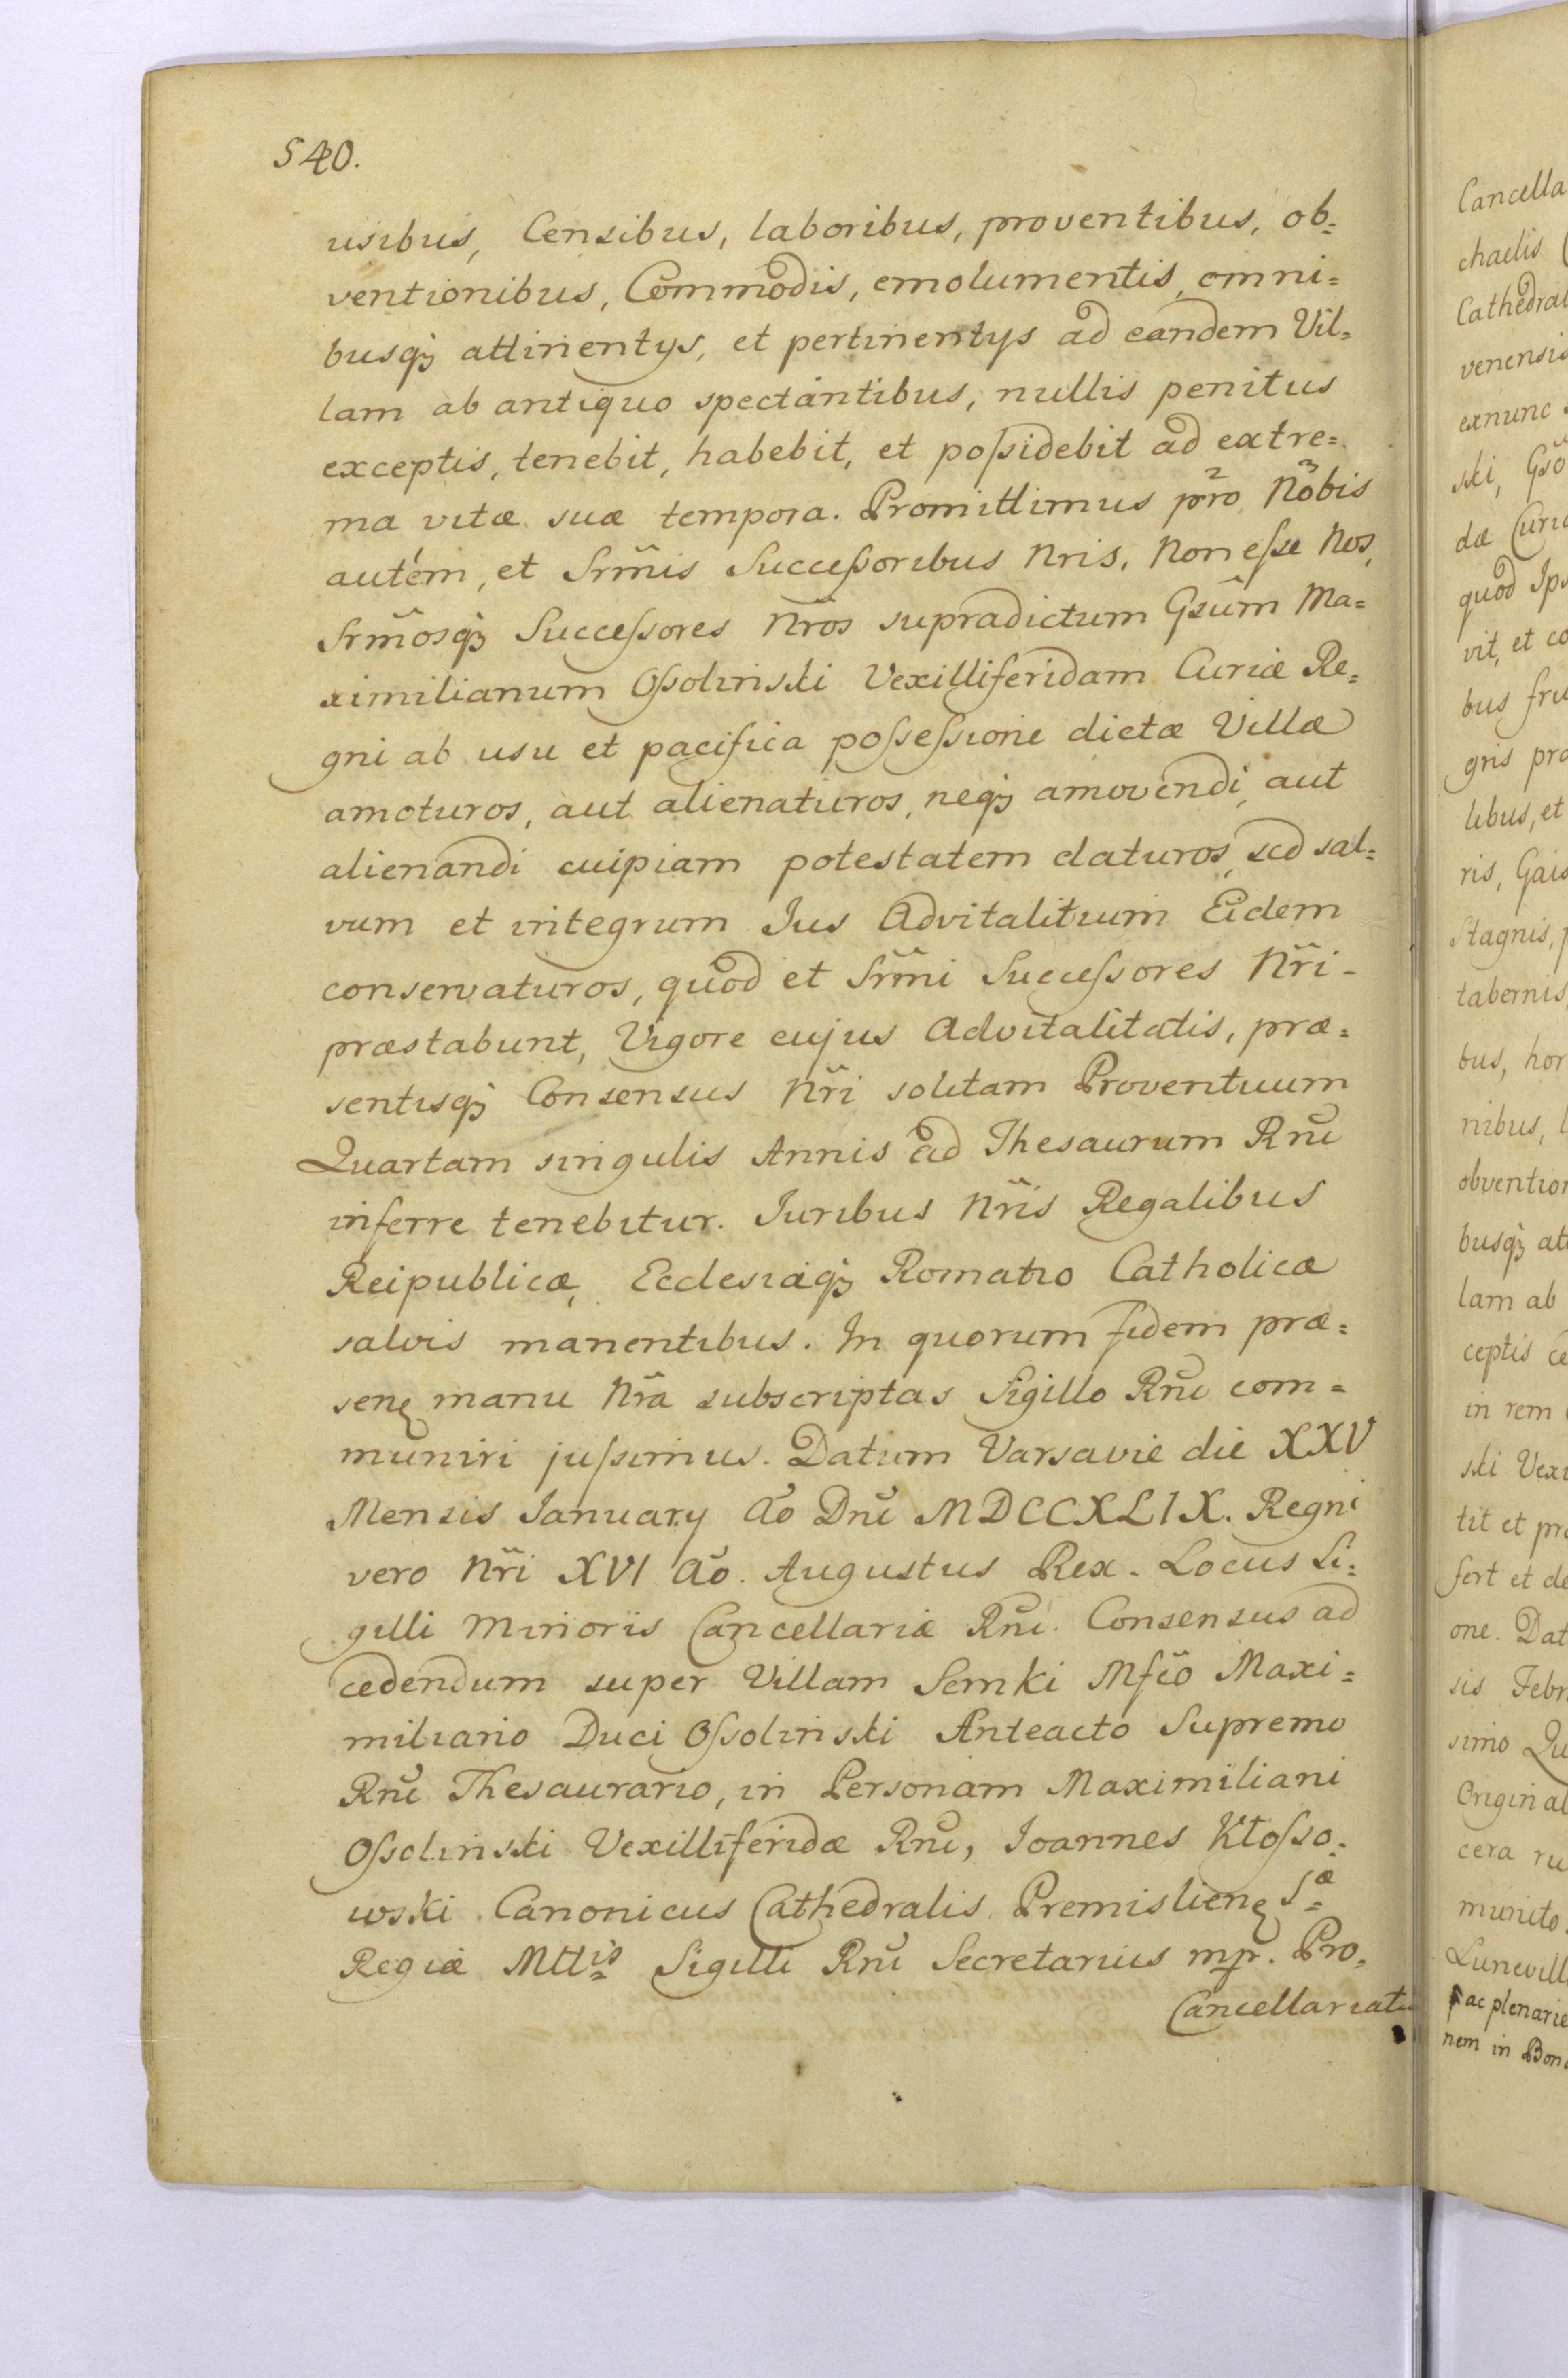 540.
usibus, Censibus, laboribus, proventibus, ob=
ventionibus, Commodis, emolumentis, omni=
busq₃ attinentys, et pertinentys ad eandem Vil=
lam ab antiquo spectantibus, nullis penitus
exceptis, tenebit, habebit, et poſsidebit ad extre=
ma vitæ suæ tempora. Promittimus pro Nobis
autem, et Srm̃is Succeſsoribus Nris, Non eſse Nos,
Srm̃osq₃ Succeſsores Nr̃os supradictum Gsũm Ma=
ximilianum Oſsolinski Vexilliferidam Curiæ Re=
gni ab usu et pacifica poſseſsione dictæ Villæ
amoturos, aut alienaturos, neq₃ amovendi, aut
alienandi cuipiam potestatem daturos, sed sal=
vum et integrum Jus Advitalitium Eidem
conservaturos, quod et Srm̃i Succeſsores Nr̃i-
præstabunt, Vigore cujus Advitalitatis, præ=
sentisq₃ Consensus Nr̃i solitam Proventuum
Quartam singulis Annis ad Thesaurum Rñi
inferre tenebitur. Juribus Nr̃is Regalibus
Reipublicæ, Ecclesiæq₃ Romano Catholicæ
salvis manentibus. In quorum fidem præ=
senꝫ manu Nr̃a subscriptas Sigillo Rñi com=
muniri juſsimus. Datum Varsaviæ die XXV
Mensis January Aõ Dñi MDCCXLIX. Regni
vero Nr̃i XVI Aõ. Augustus Rex. Locus Si=
gilli Minoris Cancellariæ Rñi. Consensus ad
cedendum super Villam Semki Mfc̃o Maxi=
miliano Duci Oſsolinski Anteacto Supremo
Rñi Thesaurario, in Personam Maximiliani
Oſsolinski Vexilliferidæ Rñi, Joannes Kłoſso=
wski Canonicus Cathedralis Premislienꝫ Sæ
Regiæ Mttis Sigilli Rñi Secretarius mpr. Pro=
Cancellariatu
Cancella
chaelis
Cathedral
venensis
exnunc
ski, Gsõ
dæ Curiæ
quod Ips
vit, et co
bus fru
gris pra
libus, et
ris, Gais
Stagnis, p
tabernis,
bus, hor
nibus, l
obvention
busq₃ att
lam ab
ceptis ce
in rem
ski Vexi
tit et pra
fert et de
one. Dat
sis Febr
simo Qu
Original
cera ru
munito.
Lunevill
ac plenarie
nem in Bon